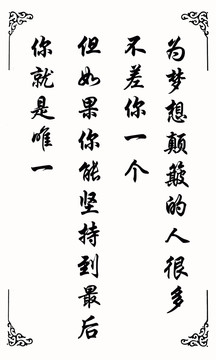 为梦想颠簸的人很多
不差你一个
但如果你能坚持到最后
你就是唯一